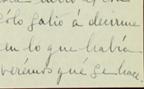 sólo salió á decirme
en lo que había
verémos qué se hace.